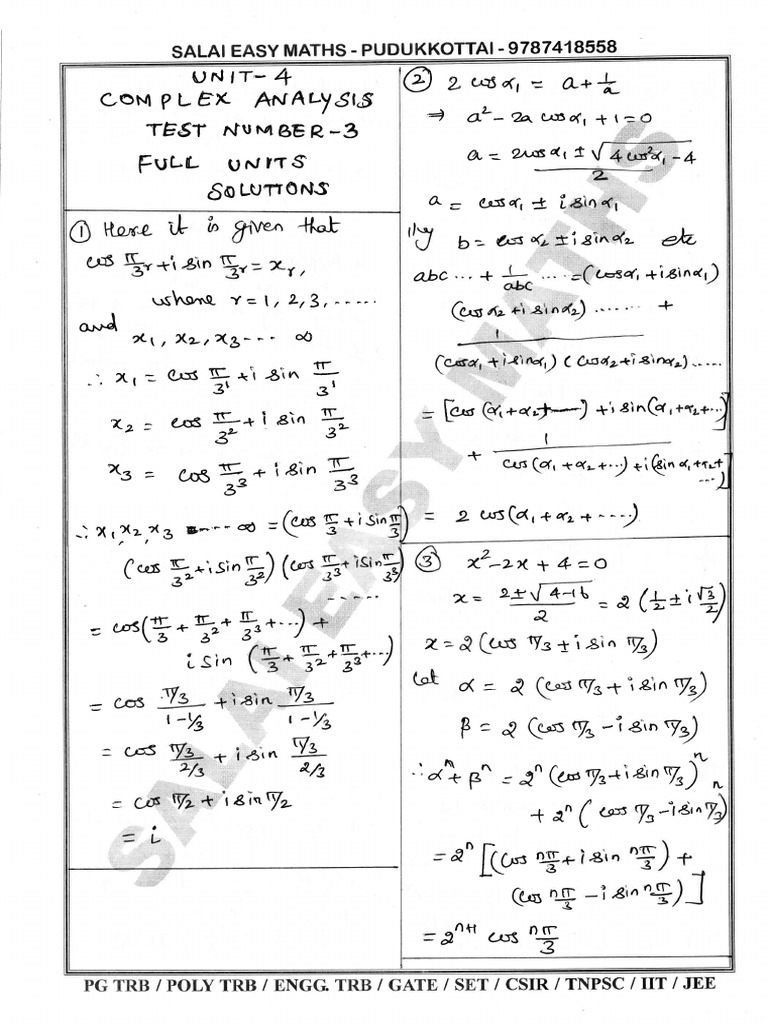 SALAI EASY MATHS - PUDUKKOTTAI - 9787418558
UNIT-4
COMPLEX ANALYSIS
TEST NUMBER-3
FULL UNITS
SOLUTIONS
① Here it is given that
cos π/3^r + i sin π/3^r = x_r,
where r = 1, 2, 3, ......
and
x₁, x₂, x₃ ... ∞
∴ x₁ = cos π/3¹ + i sin π/3¹
x₂ = cos π/3² + i sin π/3²
x₃ = cos π/3³ + i sin π/3³
∴ x₁, x₂, x₃ ..... ∞ = (cos π/3 + i sin π/3)
(cos π/3² + i sin π/3²) (cos π/3³ + i sin π/3³)
.....
= cos(π/3 + π/3² + π/3³ + ...) +
i sin (π/3 + π/3² + π/3³ + ...)
= cos (π/3)/(1-1/3) + i sin (π/3)/(1-1/3)
= cos (π/3)/(2/3) + i sin (π/3)/(2/3)
= cos π/2 + i sin π/2
= i
② 2 cos α₁ = a + 1/a
⇒ a² - 2a cos α₁ + 1 = 0
a = (2cos α₁ ± √(4 cos²α₁ - 4))/2
a = cos α₁ ± i sin α₁
|||ly b = cos α₂ ± i sin α₂ etc
abc ... + 1/abc ... = (cos α₁ + i sin α₁)
(cos α₂ + i sin α₂) ...... +
1/((cos α₁ + i sin α₁) (cos α₂ + i sin α₂) .....)
= [cos (α₁ + α₂ + ...) + i sin (α₁ + α₂ + ...)]
+ 1/(cos (α₁ + α₂ + ...) + i (sin α₁ + α₂ + ....))]
= 2 cos (α₁ + α₂ + ....)
③ x² - 2x + 4 = 0
x = (2 ± √(4-16))/2 = 2 (1/2 ± i √3/2)
x = 2 (cos π/3 ± i sin π/3)
Let α = 2 (cos π/3 + i sin π/3)
β = 2 (cos π/3 - i sin π/3)
∴ αⁿ + βⁿ = 2ⁿ (cos π/3 + i sin π/3)ⁿ
+ 2ⁿ (cos π/3 - i sin π/3)ⁿ
= 2ⁿ [(cos nπ/3 + i sin nπ/3) +
(cos nπ/3 - i sin nπ/3)]
= 2ⁿ⁺¹ cos nπ/3
SALAI EASY MATHS
PG TRB / POLY TRB / ENGG. TRB / GATE / SET / CSIR / TNPSC / IIT / JEE